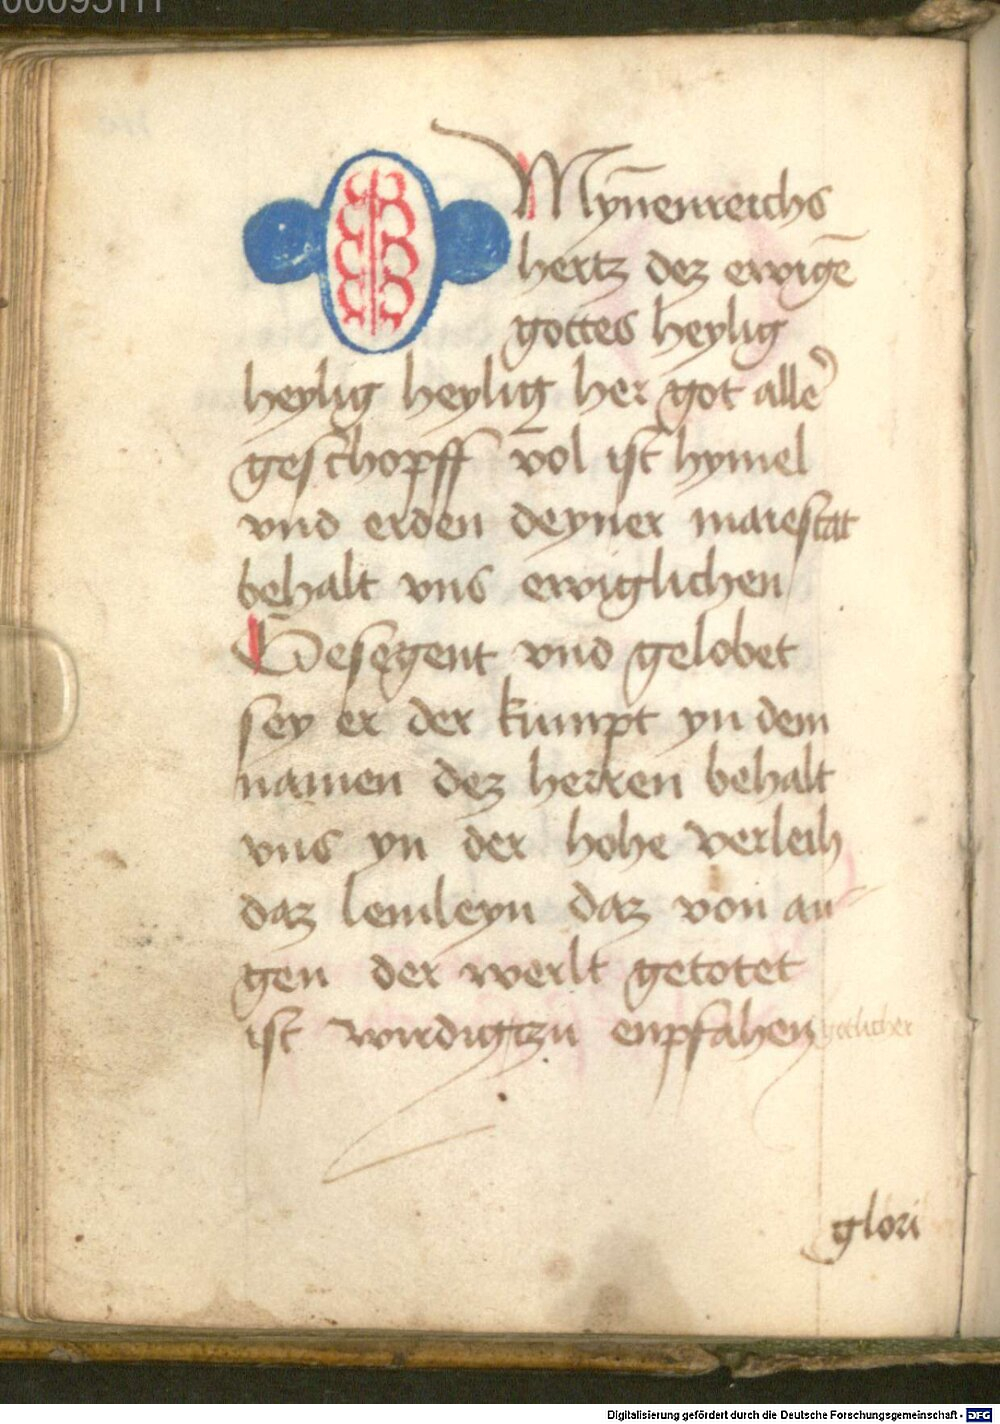 00095111
O Myn̄enreichs
hertz dez ewigē
gottes heylig
heylig heylig her got alle᷑
geschopff vol ist hymel
vnd erden deyner maiestat
behalt vns ewiglichen
Gesegent vnd gelobet
sey er der kumpt yn dem
namen dez herren behalt
vns yn der hohe verleih
daz lemleyn daz von an
gen der werlt getotet
ist wirdig czu enpfahen gotlicher
glori
Digitalisierung gefördert durch die Deutsche Forschungsgemeinschaft - DFG